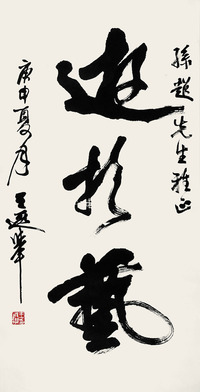 孫趙先生雅正
遊於藝
庚申夏月 王遐舉